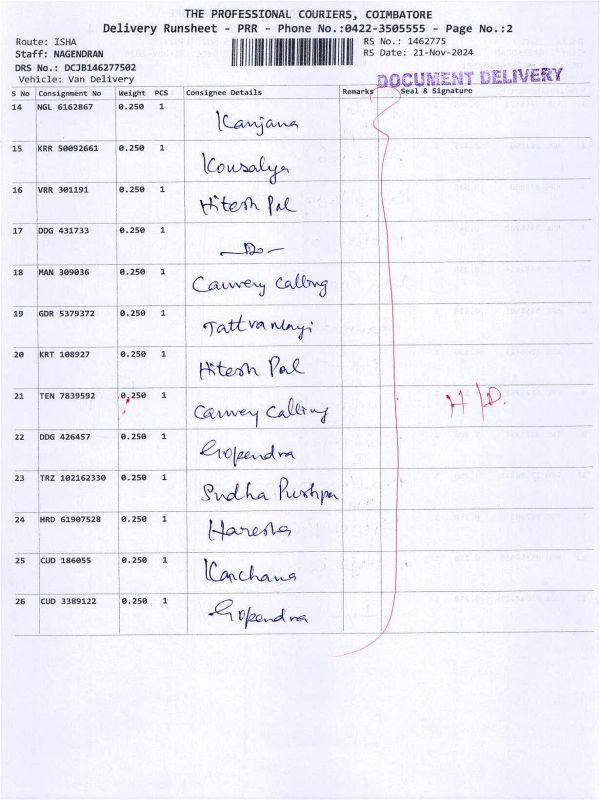 THE PROFESSIONAL COURIERS, COIMBATORE
Delivery Runsheet - PRR - Phone No.:0422-3505555 - Page No.:2
Route: ISHA
Staff: NAGENDRAN
DRS No.: DCJB146277502
Vehicle: Van Delivery
RS No.: 1462775
RS Date: 21-Nov-2024
DOCUMENT DELIVERY
S No Consignment No Weight PCS Consignee Details Remarks Seal & Signature
14 NGL 6162867 0.250 1 Kanjana
15 KRR 50092661 0.250 1 Kousalya
16 VRR 301191 0.250 1 Hitesh Pal
17 DDG 431733 0.250 1 —Do—
18 MAN 309036 0.250 1 Cauvery Calling
19 GDR 5379372 0.250 1
20 KRT 108927 0.250 1 Hitesh Pal
21 TEN 7839592 0.250 1 Cauvery Calling H/D.
22 DDG 426457 0.250 1 Gopendra
23 TRZ 102162330 0.250 1 Sudha Pushpa
24 HRD 61907528 0.250 1
25 CUD 186055 0.250 1 Kanchana
26 CUD 3389122 0.250 1 Gopendra